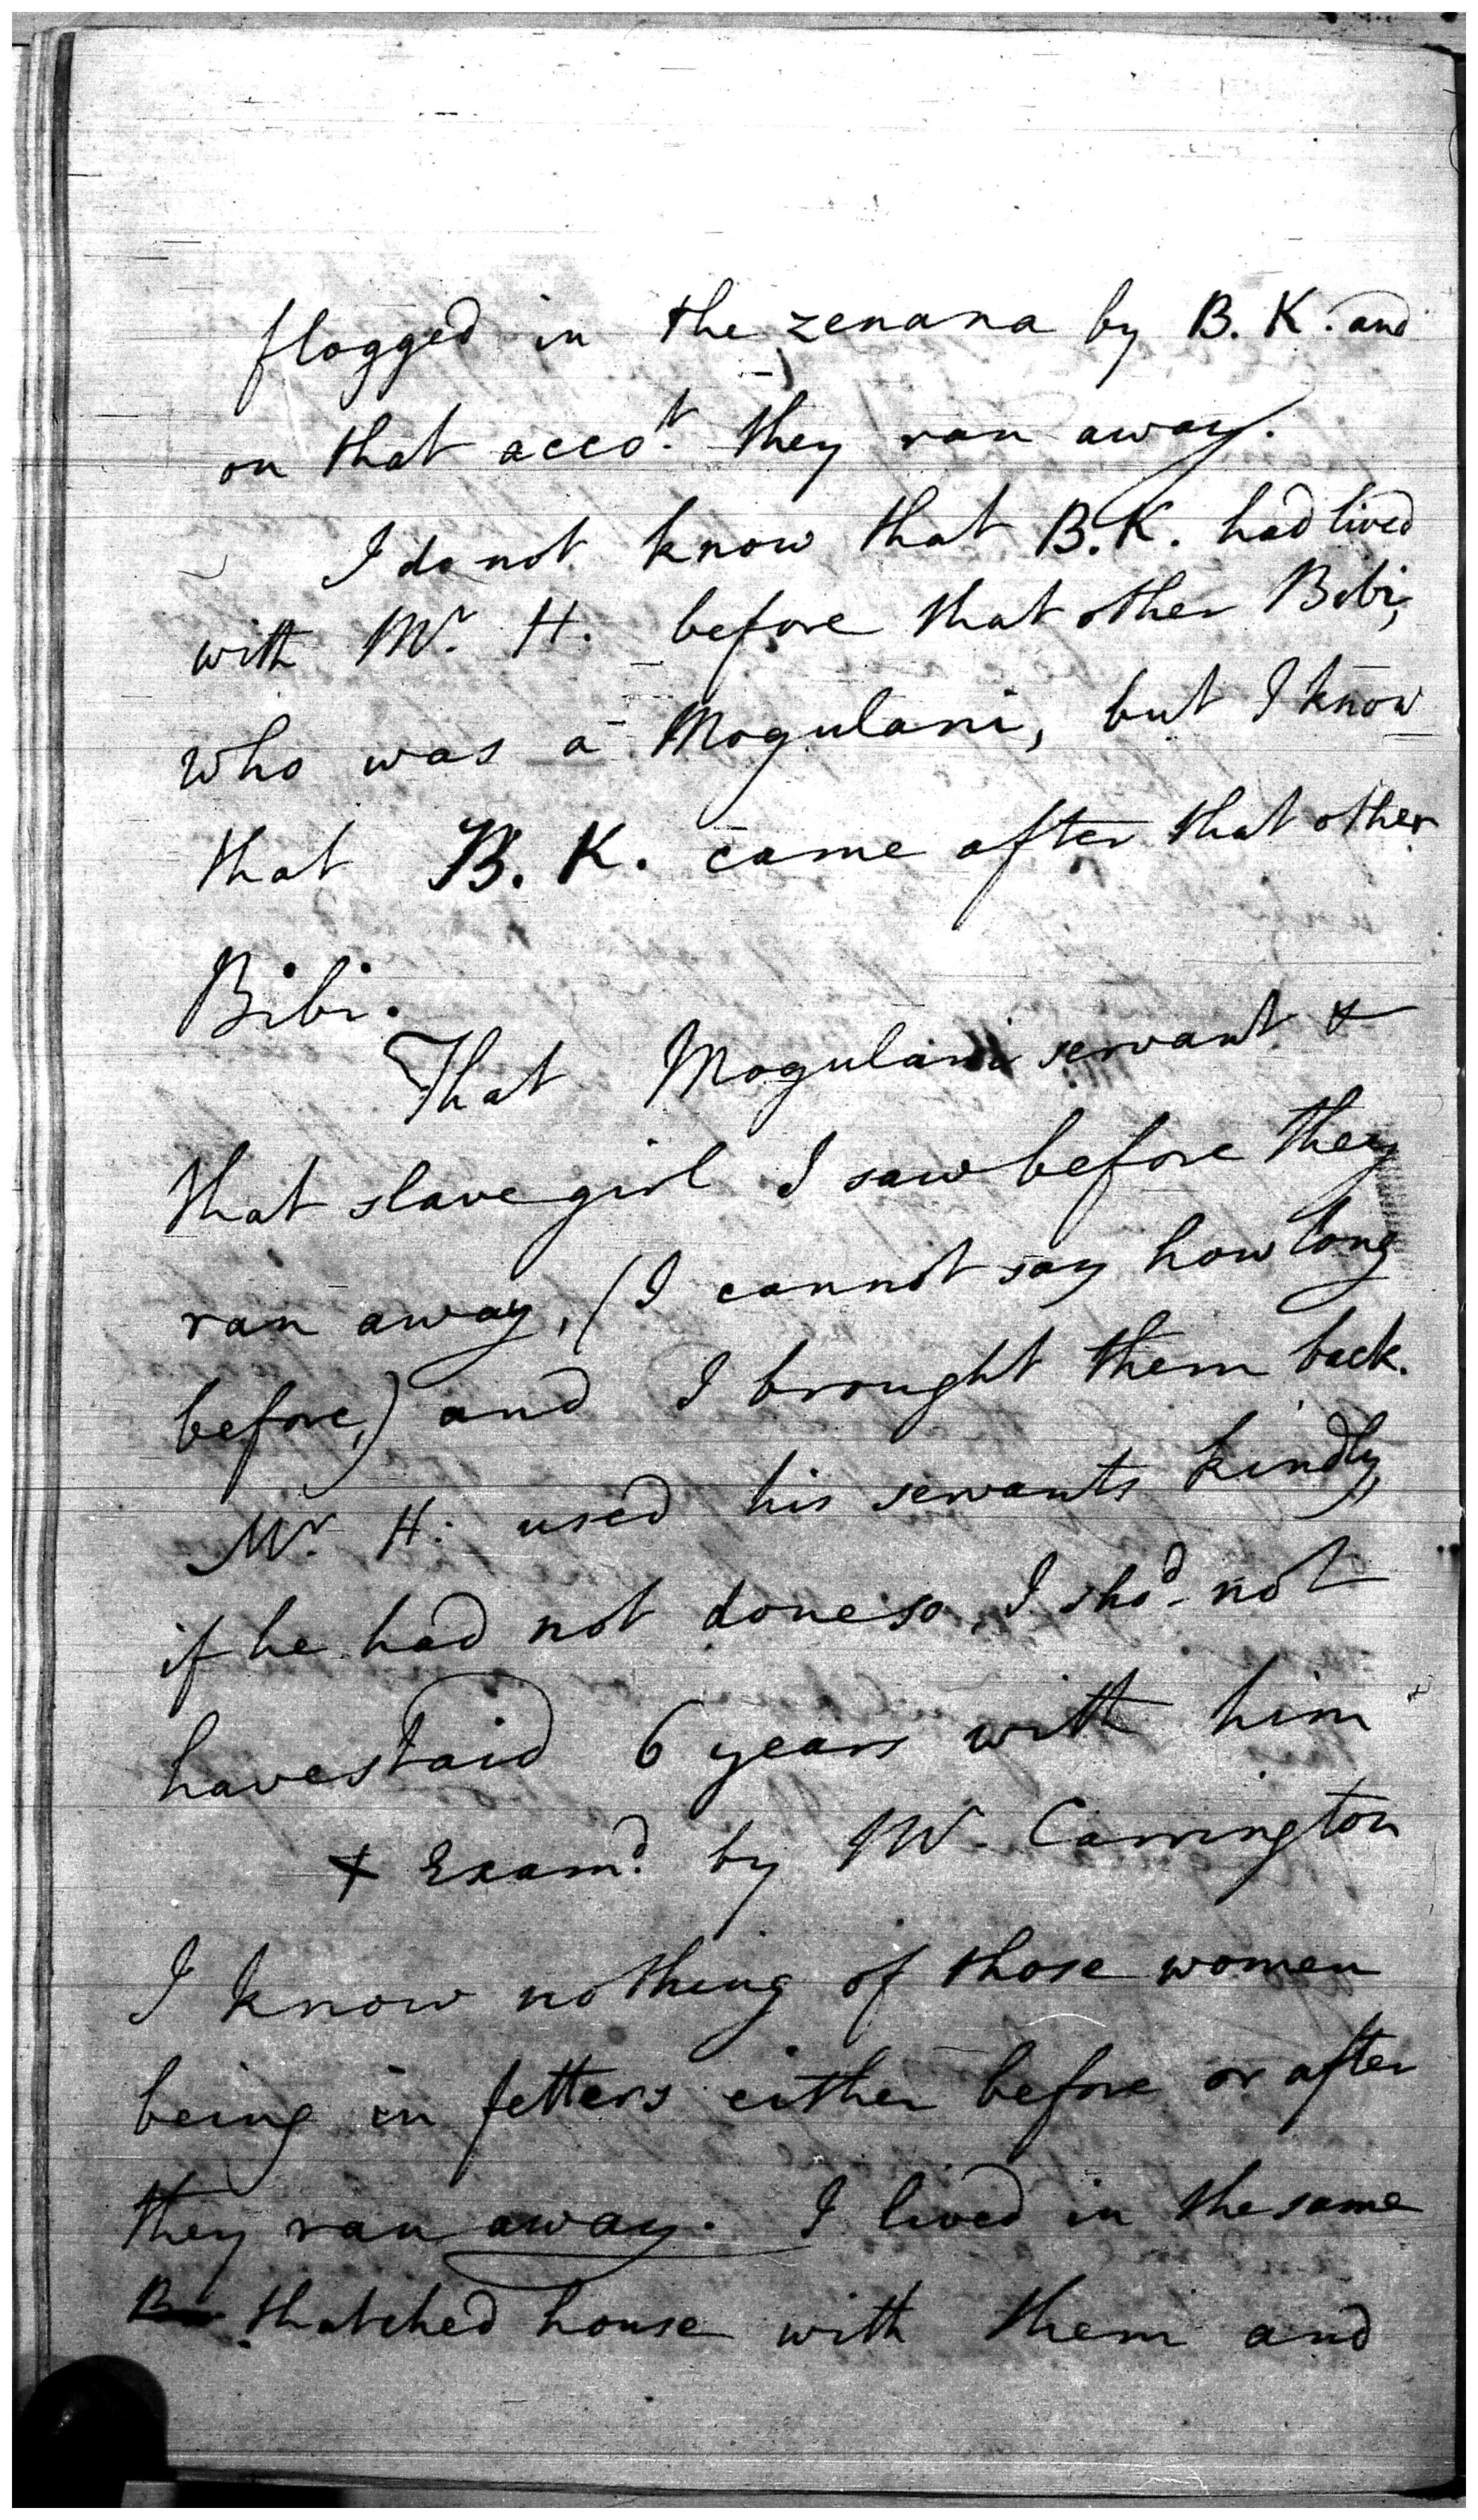 flogged in the zenana by B. K. and
on that acco.t they ran away.
I do not know that B. K. had lived
with Mr. H. before that other Bibi,
who was a Mogulani, but I know
that B. K. came after that other
Bibi.
That Mogulani servant &
that slave girl I saw before they
ran away, (I cannot say how long
before,) and I brought them back.
Mr. H. used his servants kindly,
if he had not done so, I shod. not
have staid 6 years with him
+ Examd. by Mr. Carrington
I know nothing of those women
being in fetters either before or after
they ran away. I lived in the same
thatched house with them and